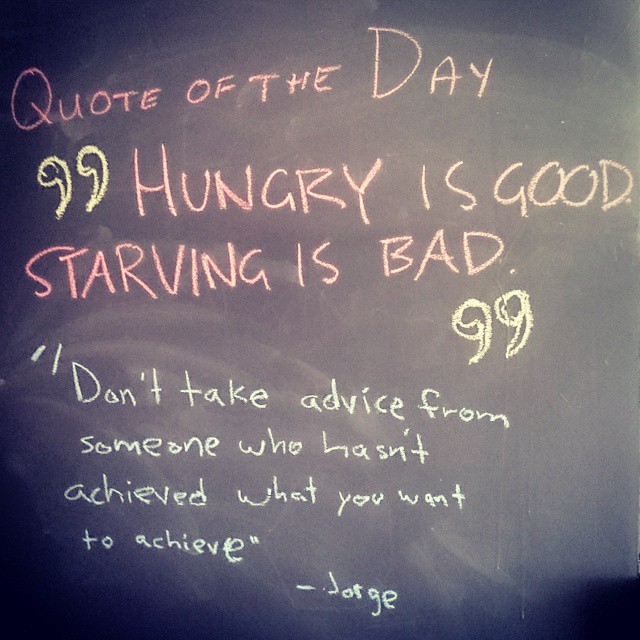 QUOTE OF THE DAY
" HUNGRY IS GOOD.
STARVING IS BAD.
"
"Don't take advice from
someone who hasn't
achieved what you want
to achieve"
- Jorge